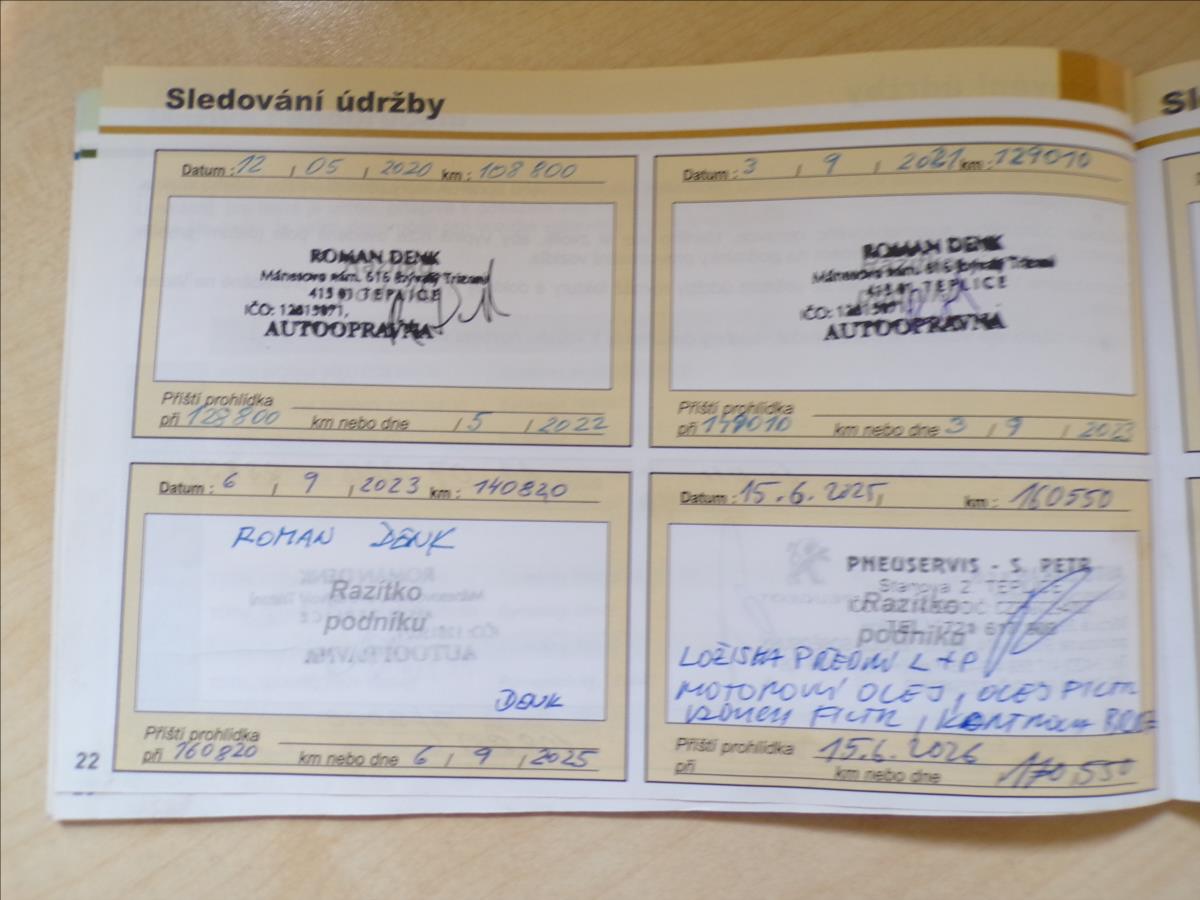 Sledování údržby
Datum : 12 / 05 / 2020 km : 108 800
ROMAN DENK
Mánesovo nám. 616
415 01 TEPLICE
IČO: 12815071,
AUTOOPRAVNA
Příští prohlídka
při 128 800 km nebo dne / 5 / 2022
Datum : 3 / 9 / 2021 km : 129010
ROMAN DENK
Mánesovo nám. 616
415 01 TEPLICE
AUTOOPRAVNA
Příští prohlídka
při 149010 km nebo dne 3 / 9 / 2023
Datum : 6 / 9 / 2023 km : 140820
ROMAN DENK
Razítko
podniku
DENK
Příští prohlídka
při 160820 km nebo dne 6 / 9 / 2025
Datum : 15.6. 2025 km : 160550
PNEUSERVIS - S. PETR
2, TEPLICE
Razítko
podniku
LOŽISKA PŘEDNÍ L+P
MOTOROVÝ OLEJ, OLEJ FILTR
VZDUCH FILTR, KONTROLA
Příští prohlídka 15.6. 2026
při km nebo dne 170,550
22
Sl